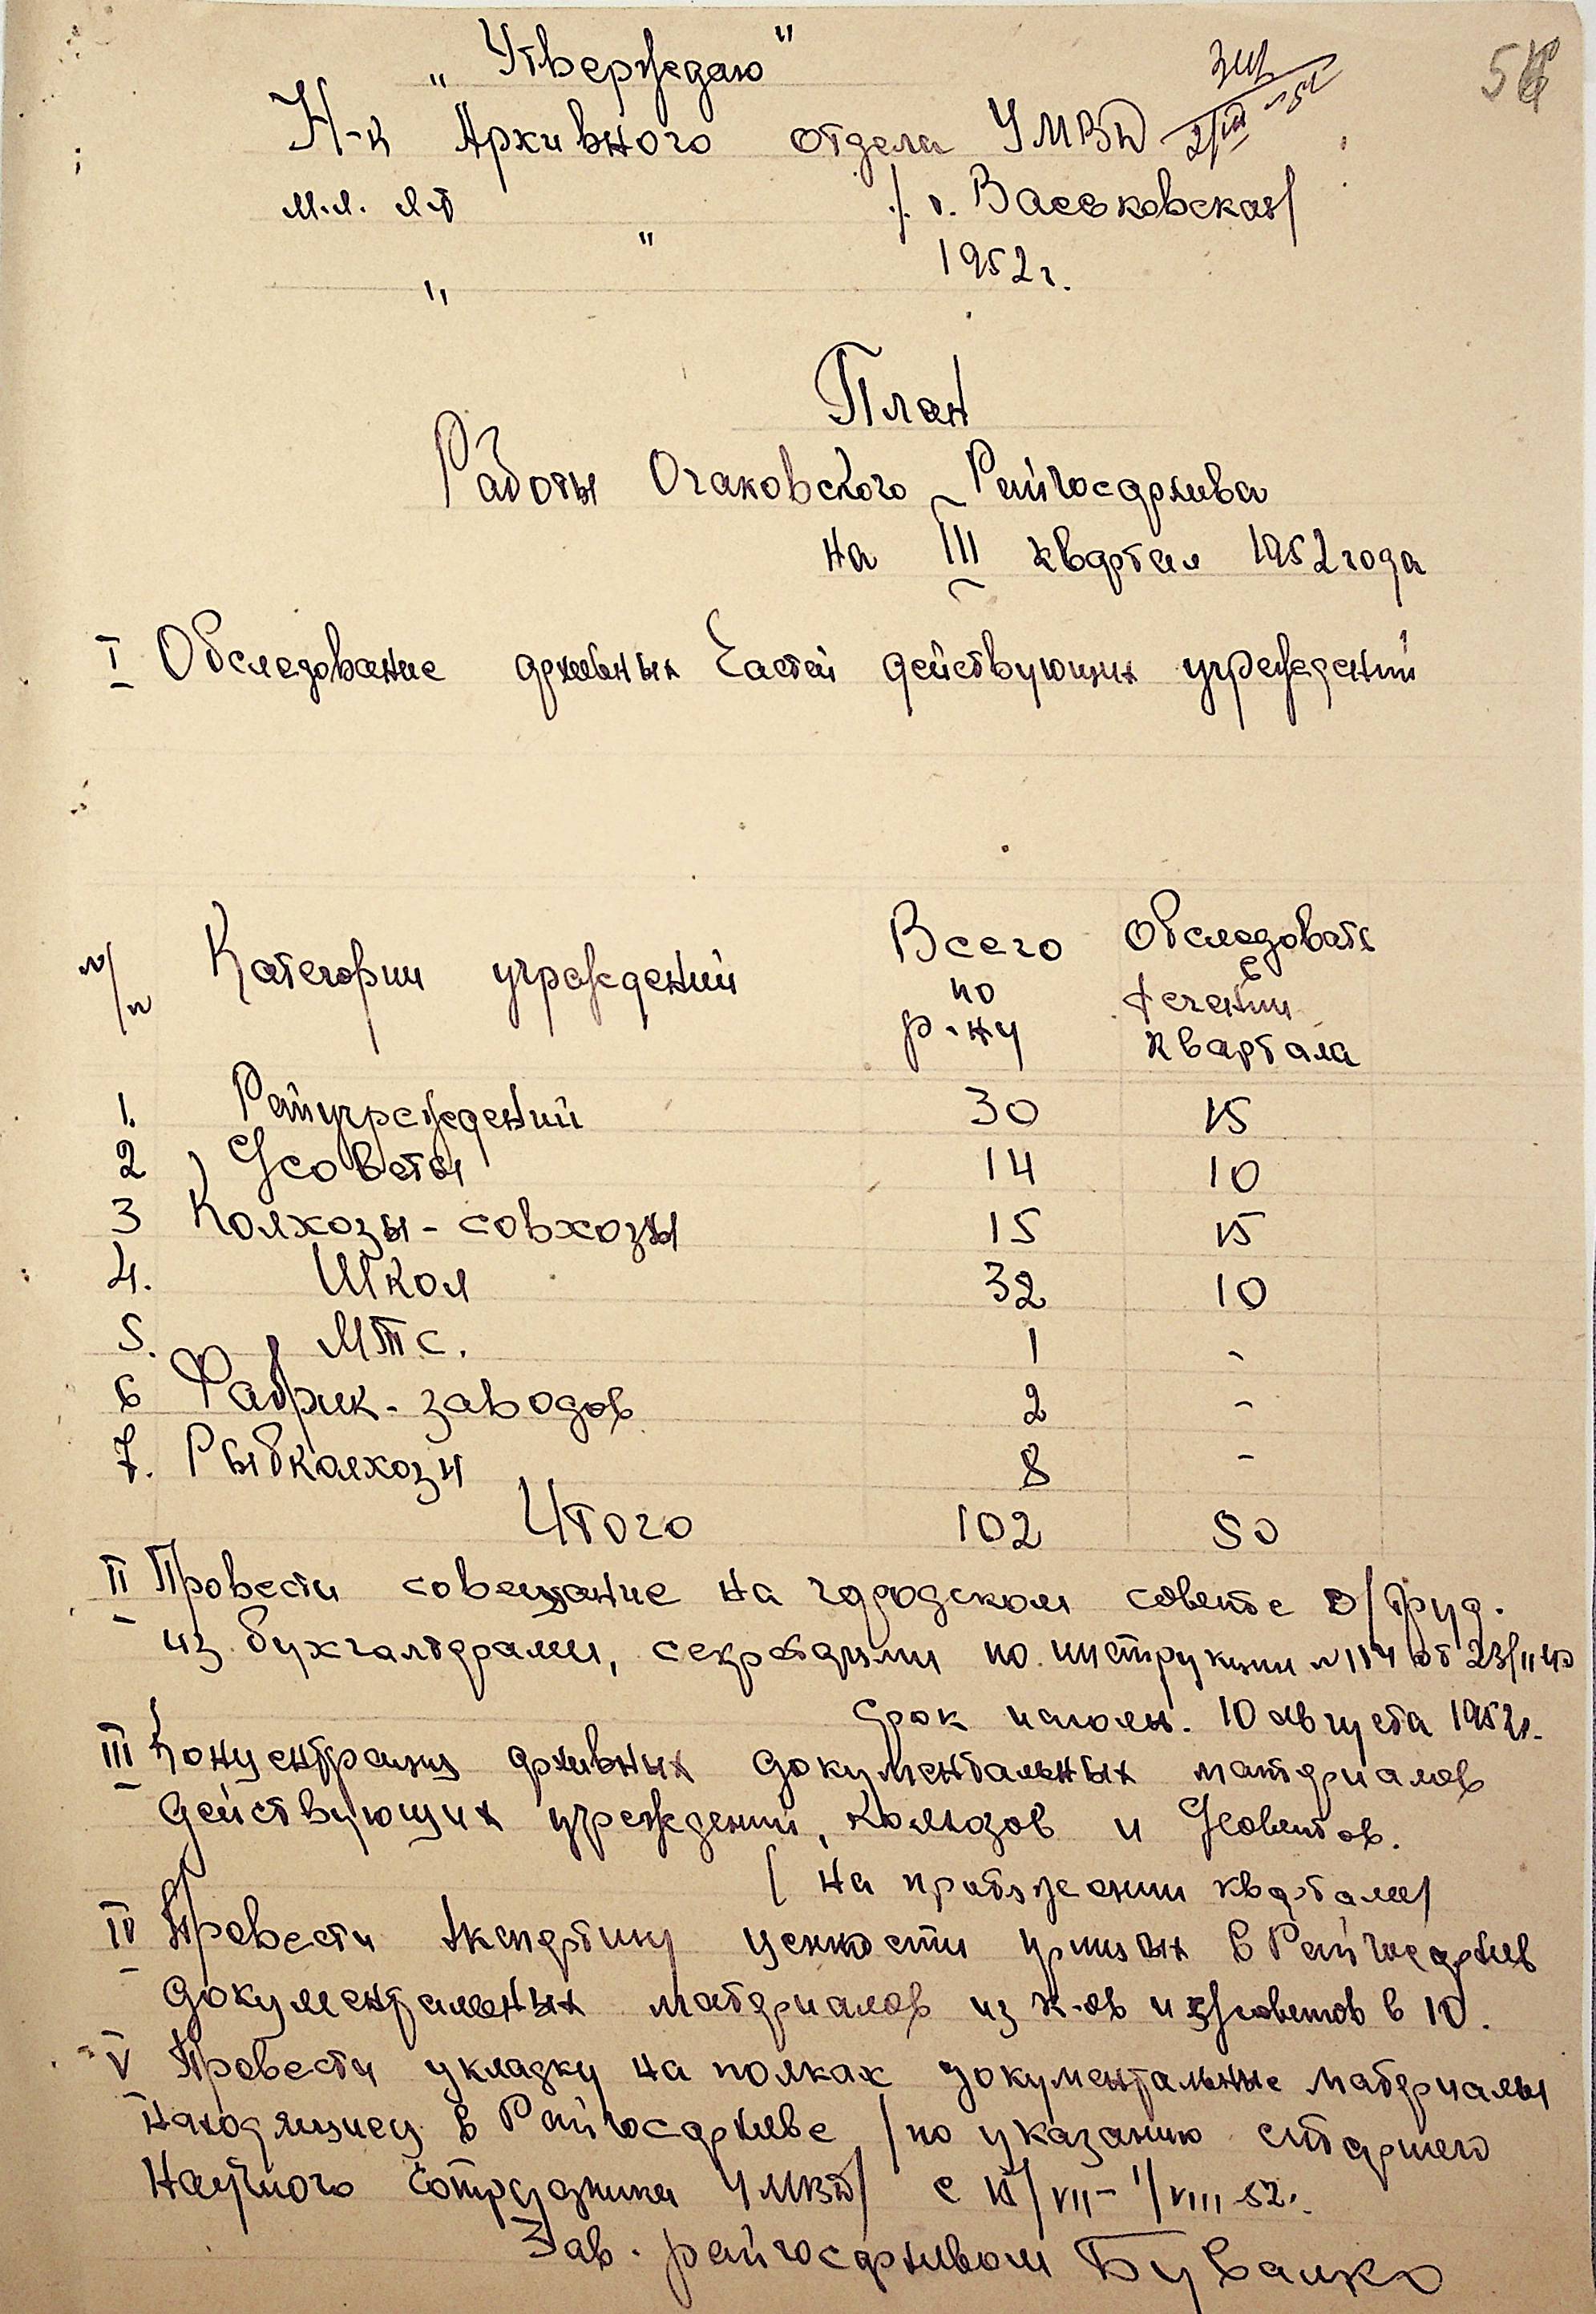 „Утверждаю"
Н-к Архивного отдела УМВД
м.л. л-т /т. Васьковская/
„ " 1952 г.
План
Работы Очаковского Райгосархива
на III квартал 1952 года
I Обследование архивных частей действующих учреждений
№/п Категории учреждений Всего по р-ну Обследовать в течении квартала
1. Райучреждений 30 15
2 С/советы 14 10
3 Колхозы-совхозы 15 15
4. Школ 32 10
5. МТС. 1 -
6 Фабрик-заводов 2 -
7. Рыбколхозы 8 -
Итого 102 50
II Провести совещание на городском совете д/труд.
из бухгалтерами, секретарями по инструкции №114 от 23/II
срок исполн. 10 августа 1952 г.
III Концентрация архивных документальных материалов
действующих учреждений, колхозов и с/советов.
/на протяжении квартала/
IV Провести экспертизу ценности принятых в Райгосархив
документальных материалов из к-ов и с/советов в 10.
V Провести укладку на полках документальные материалы
находящиеся в Райгосархиве /по указанию старшего
научного сотрудника УМВД/ с /VII-1/VIII 52.
Зав. райгосархивом Бувалко